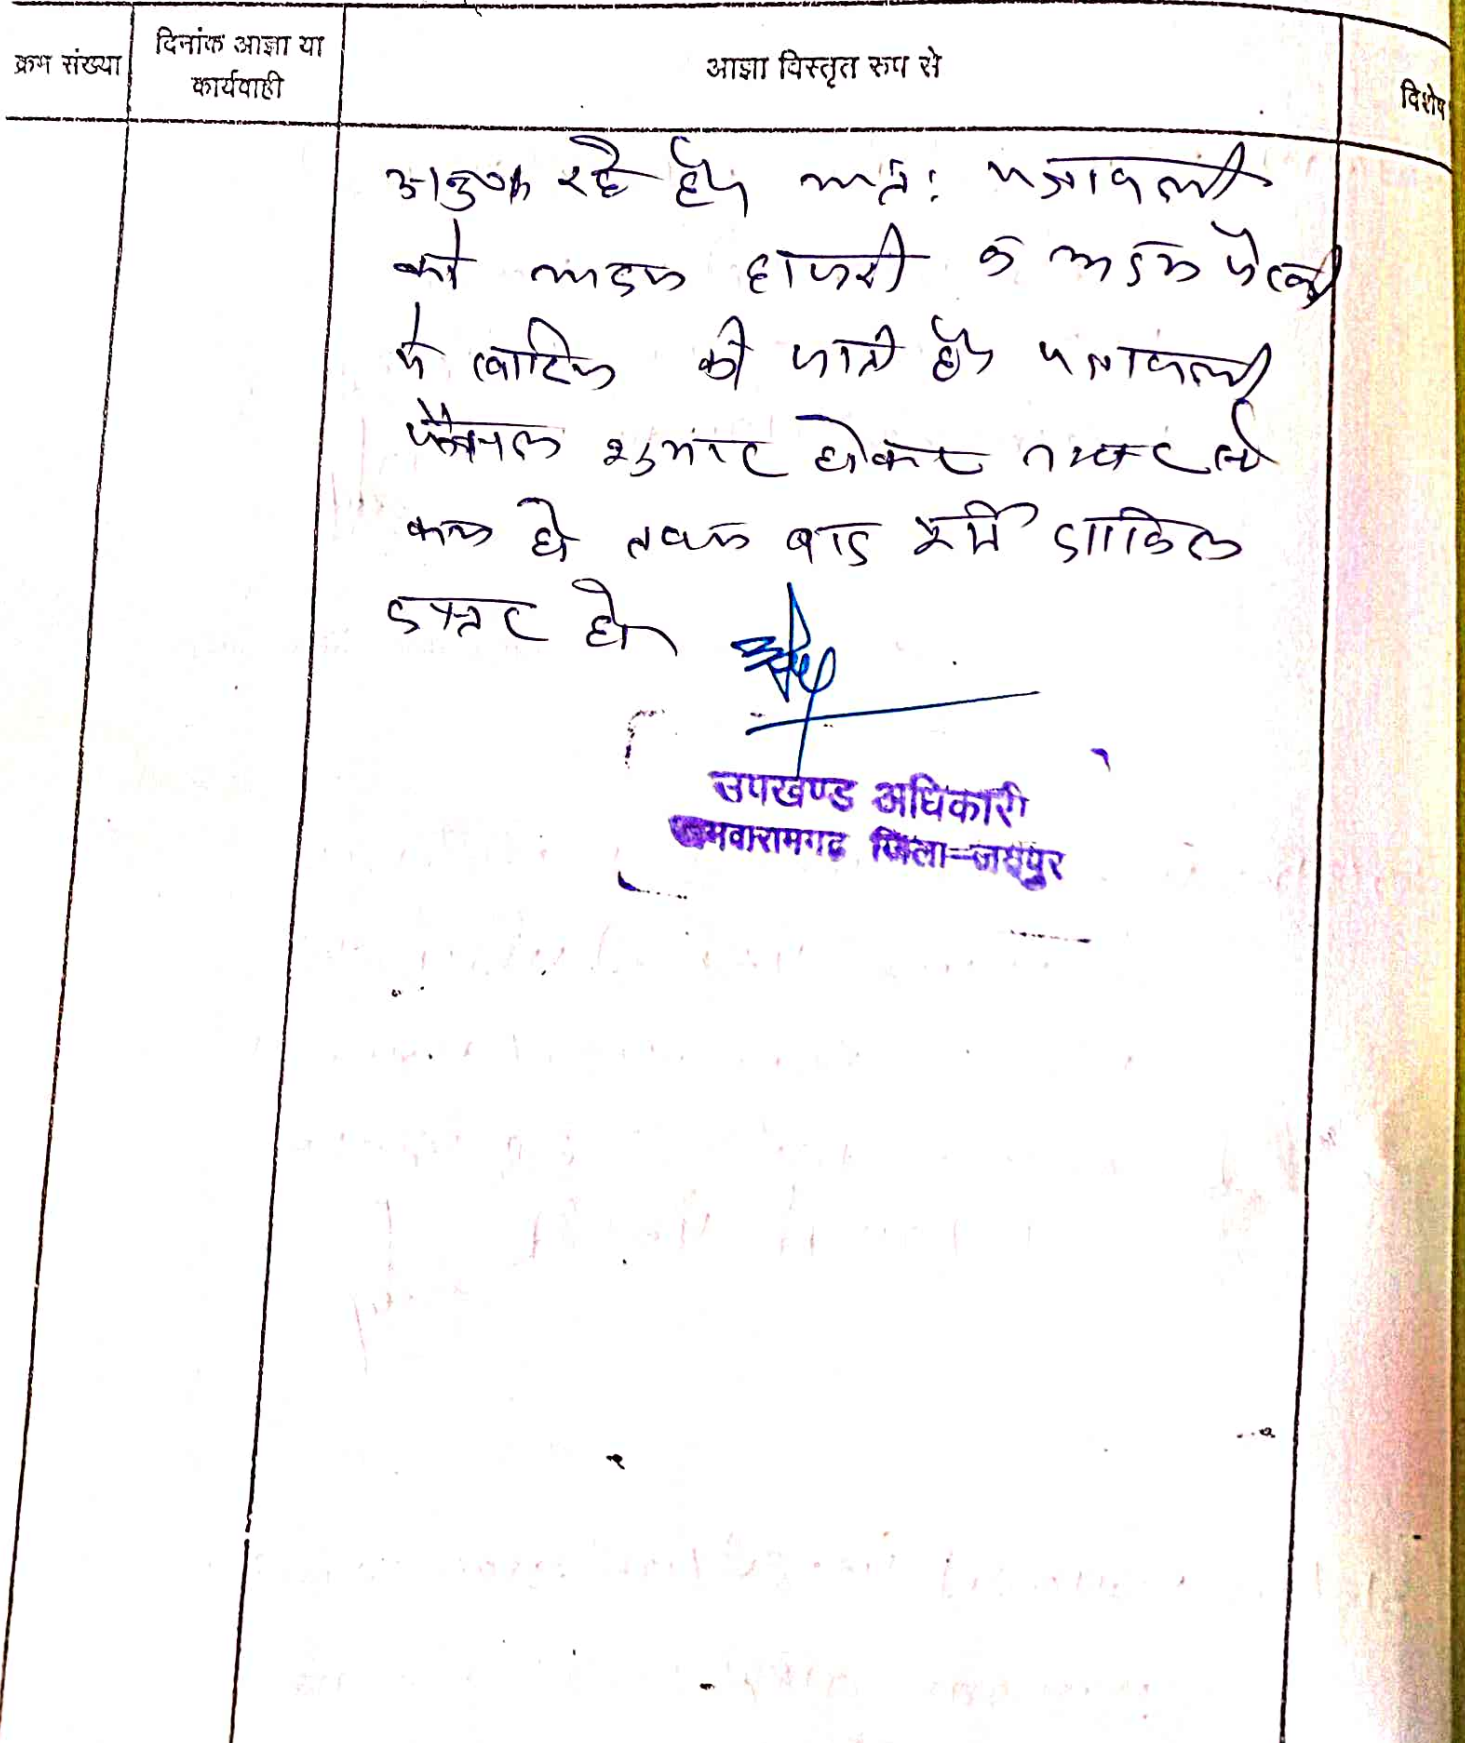 क्रम संख्या
दिनांक आज्ञा या
कार्यवाही
आज्ञा विस्तृत रूप से
विशेष
रहे है। अतः पत्रावली
को अदम हाजरी व अदम पैरवी
मे खारिज की जाती है। पत्रावली
फैसल शुमार होकर नम्बर से
कम हो बाद दाखिल
दफ्तर हो
उपखण्ड अधिकारी
जमवारामगढ जिला=जयपुर